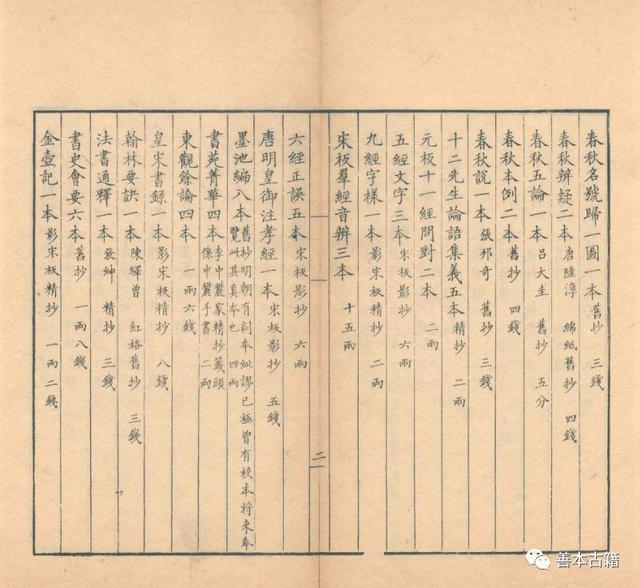 春秋名號歸一圖一本舊抄 三錢
春秋辨疑二本唐陸淳 綿紙舊抄 四錢
春秋五論一本呂大圭 舊抄 五分
春秋本例二本舊抄 四錢
春秋說一本張邦奇 舊抄 三錢
十二先生論語集義五本精抄 二兩
元板十一經問對二本 二兩
五經文字三本宋板影抄 六兩
九經字樣一本影宋板精抄 二兩
宋板羣經音辨三本 十五兩
二
六經正誤五本宋板影抄 六兩
唐明皇御注孝經一本宋板影抄 五錢
墨池編八本舊抄明朝有刻本紕謬已極曾有校本將來奉
覽此其真本也 四兩
書苑菁華四本李中麓家精抄籤頭
係中麓手書 二兩
東觀餘論四本 一兩六錢
皇宋書錄一本影宋板精抄 八錢
翰林要訣一本陳繹曾 紅格舊抄 三錢
法書通釋一本張紳 精抄 三錢
書史會要六本舊抄 一兩八錢
金壺記一本影宋板精抄 一兩二錢
善本古籍